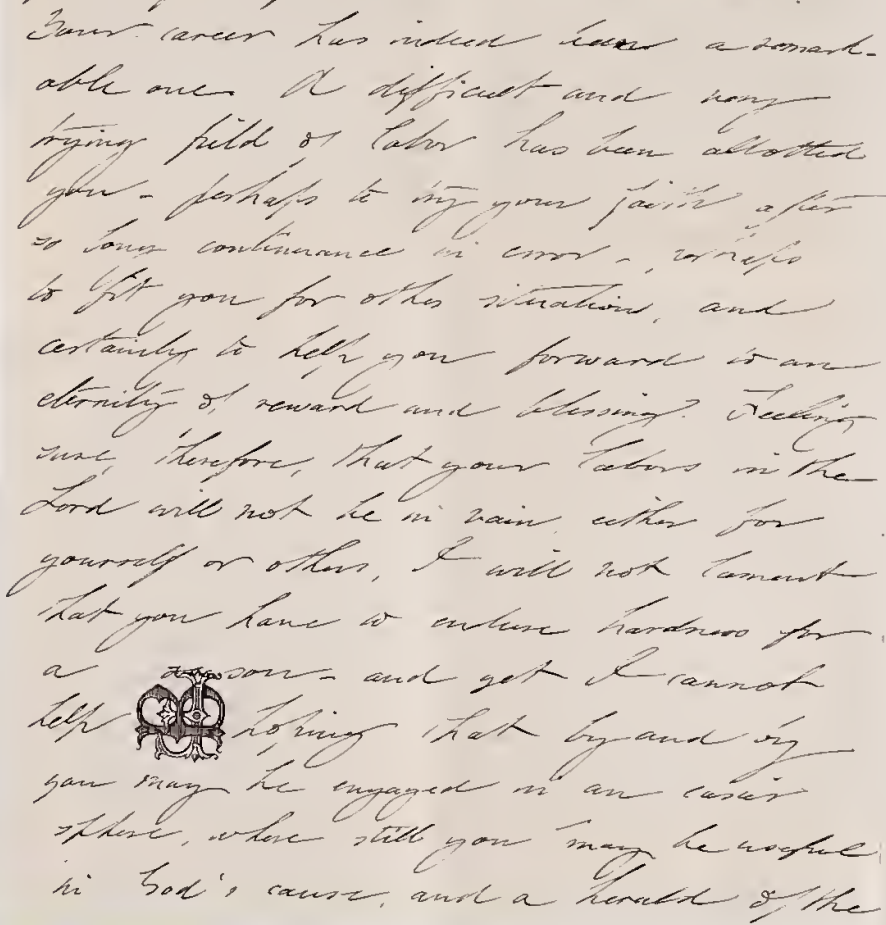 Your career has indeed been a remark-
able one. A difficult and very
trying field of labor has been allotted
you - perhaps to try your faith after
so long continuance in error -, perhaps
to fit you for other situation, and
certainly to help you forward to an
eternity of reward and blessing. Feeling
sure, therefore, that your labors in the
Lord will not be in vain, either for
yourself or others, I will not lament
that you have to endure hardness for
a season - and yet I cannot
help hoping that by and by
you may be engaged in an easier
sphere, where still you may be useful
in God's cause, and a herald of the